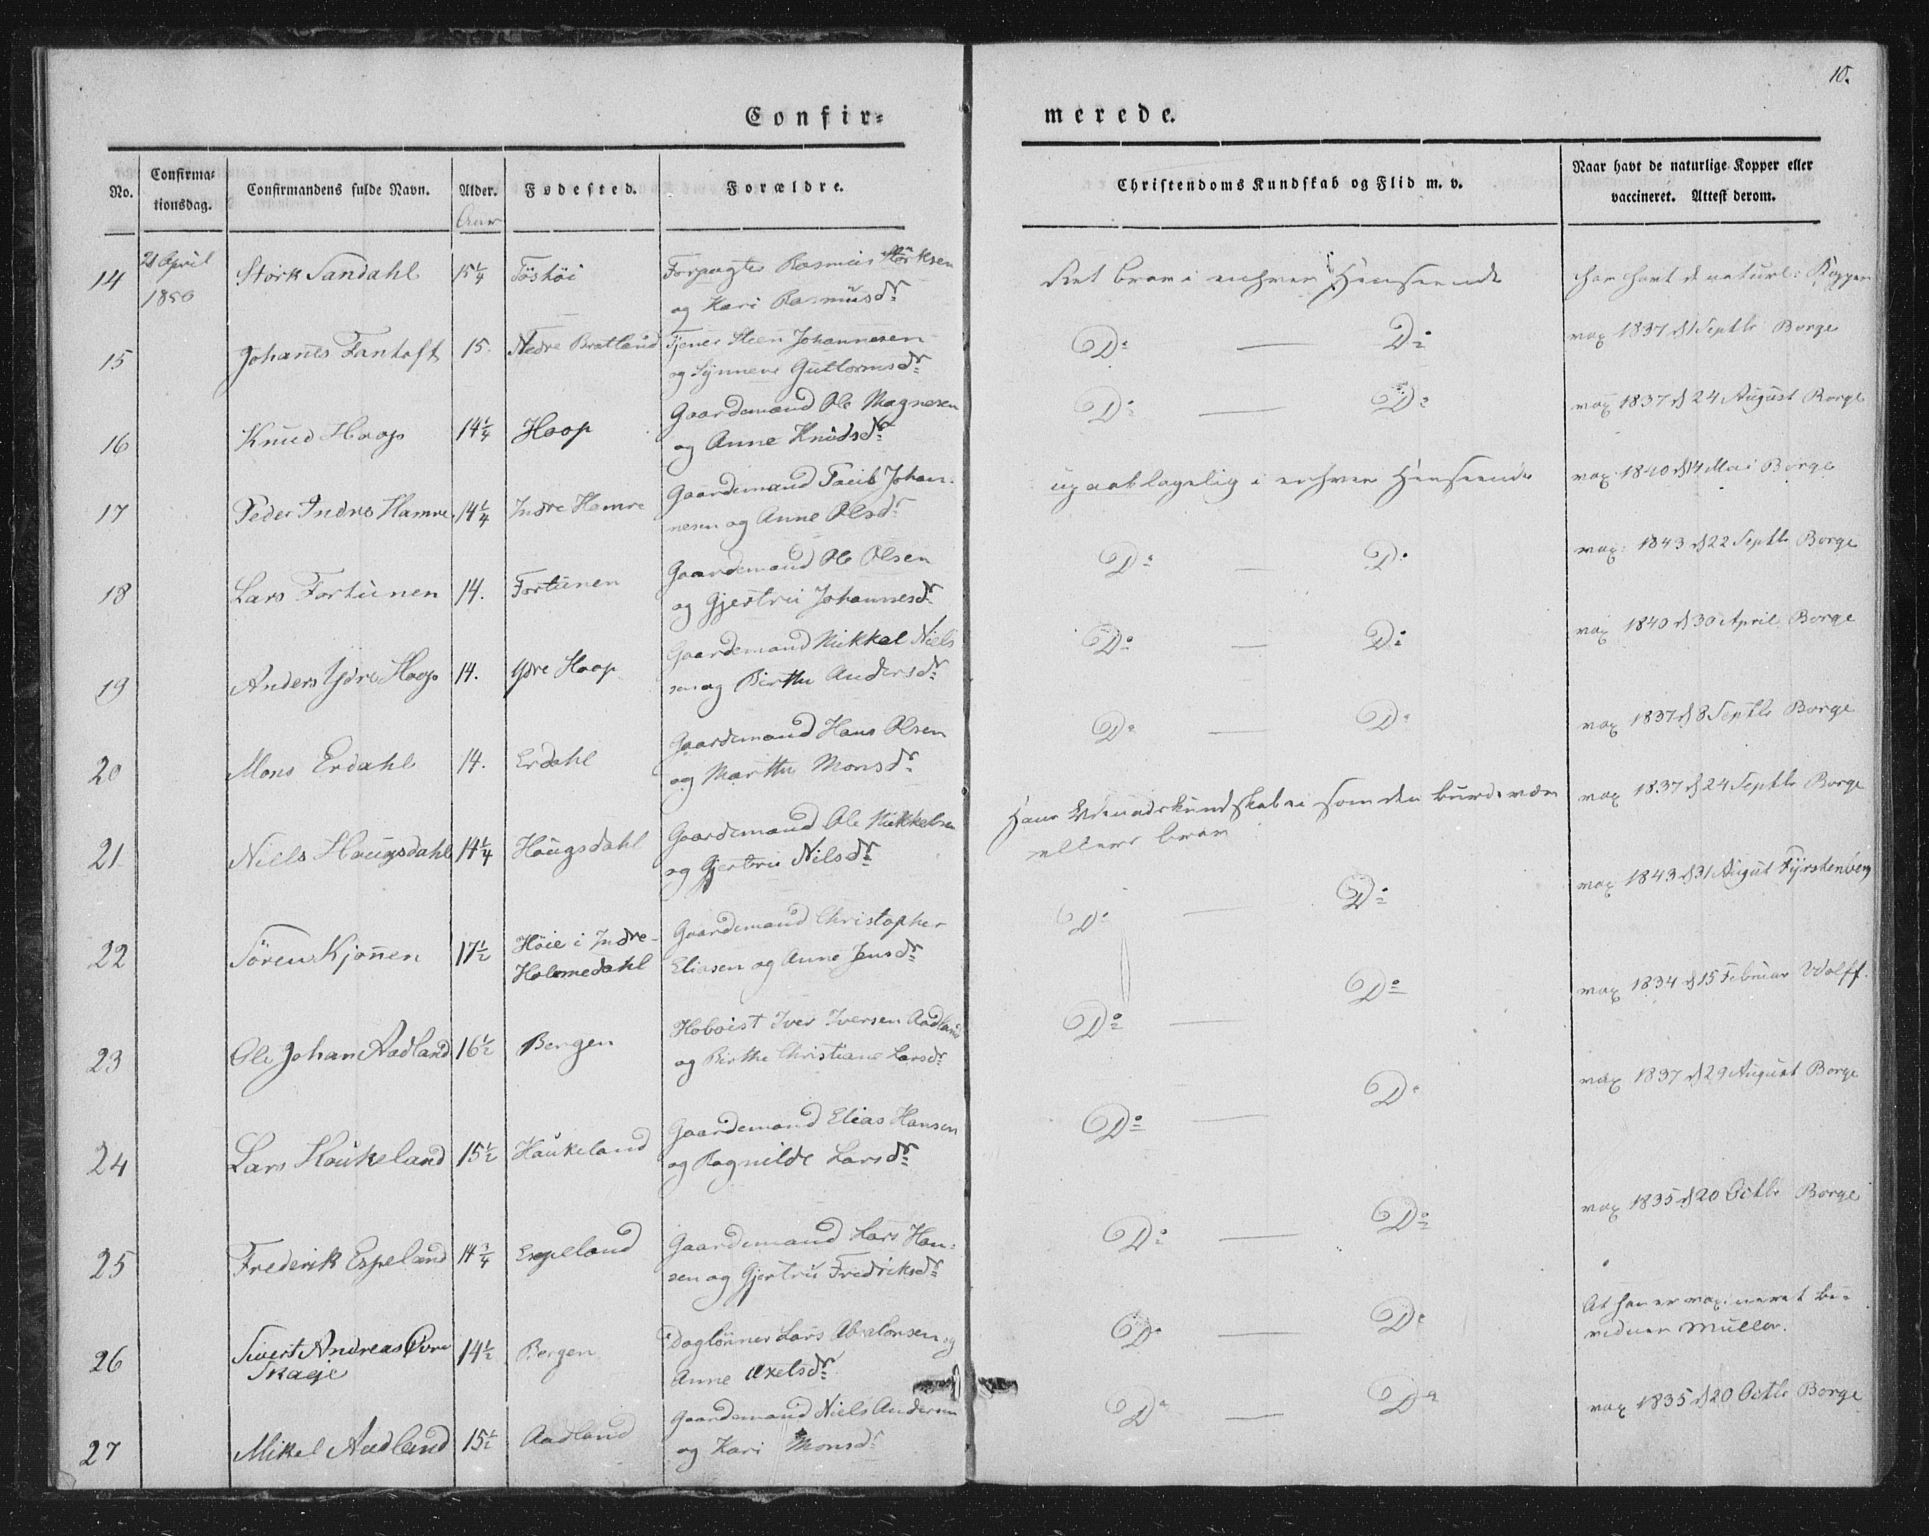 10.
Confir=
merede.
No.
Confirma-
tionsdag.
Confirmandens fulde Navn.
Alder.
Aar
Fødested.
Forældre.
Christendoms Kundskab og Flid m. v.
Naar havt de naturlige Kopper eller
vaccineret. Attest derom.
14
21 April
1850
Størk Sandahl
15 1/4
Forpagter Rasmus Størksen
og Kari Rasmusdr
Ret brav i enhver Henseende
har havt de naturl: Kopper
15
Johanes Fantoft
15.
Nedre Bratland
Tjener Steen Johannesen
og Synneve Guttormsdr
Do — Do
vax 1837 d 1 Septbr Borge
16
Knud Hoop
14 1/4
Hoop
Gaardemand Ole Magnesen
og Anne Knudsdr
Do — Do
vax 1837 d 24 August Borge
17
Peder Indre Hamre
14 1/4
Indre Hamre
Gaardemand Paul Johan-
nesen og Anne Olsdr
upaaklagelig i enhver Henseende
vax 1840 d 14 Mai Borge
18
Lars Fortunen
14.
Fortunen
Gaardemand Ole Olsen
og Gjertru Johannesdr
Do — Do
vax: 1843 d 22 Septbr Borge
19
Anders Ydre Hoop
14.
Ydre Hoop
Gaardemand Mikkel Niels
sen og Birthe Andersdr
Do — Do
vax 1840 d 30 April Borge
20
Mons Erdahl
14.
Erdahl
Gaardemand Hans Olsen
og Marthe Monsdr
Do — Do
vax 1837 d 8 Septbr Borge
21
Niels Hougsdahl
14 1/4
Hougsdahl
Gaardemand Ole Mikkelsen
og Gjertru Nilsdr
som den burde være
ellers brav
vax 1837 d 24 Septbr Borge
22
Sören Kjønen
17 1/2
Höie i Indre-
Holmedahl
Gaardemand Christopher
Eliasen og Anne Jensdr
Do — Do
vax 1843 d 31 August Fyrstenberg
23
Ole Johan Aadland
16 1/2
Bergen
Hoboist Iver Iversen Aadland
og Birthe Christiane Larsdr
Do — Do
vax 1834 d 15 Februar Wolff.
24
Lars Haukeland
15 1/2
Haukeland
Gaardemand Elias Hansen
og Ragnilde Larsdr
Do — Do
vax 1837 d 29 August Borge
25
Frederik Espeland
14 3/4
Espeland
Gaardemand Lars Han-
sen og Gjertru Fredriksdr
Do — Do
vax 1835 d 20 Octbr Borge
26
Sivert Andreas Övre
Skage
14 1/2
Bergen
Daglønner Lars Absalonsen og
Anne Axelsdr
Do — Do
At han er vaxineret be-
vidner Müller.
27
Mikel Aadland
15 1/2
Aadland
Gaardemand Niels Andersen
og Kari Monsdr
Do — Do
vax 1835 d 20 Octbr Borge